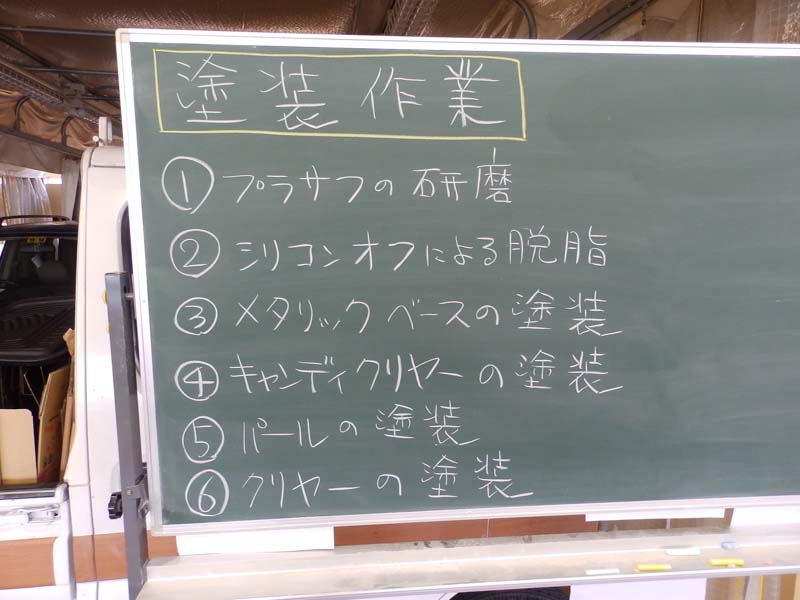 塗装作業
① プラサフの研磨
② シリコンオフによる脱脂
③ メタリックベースの塗装
④ キャンディクリヤーの塗装
⑤ パールの塗装
⑥ クリヤーの塗装